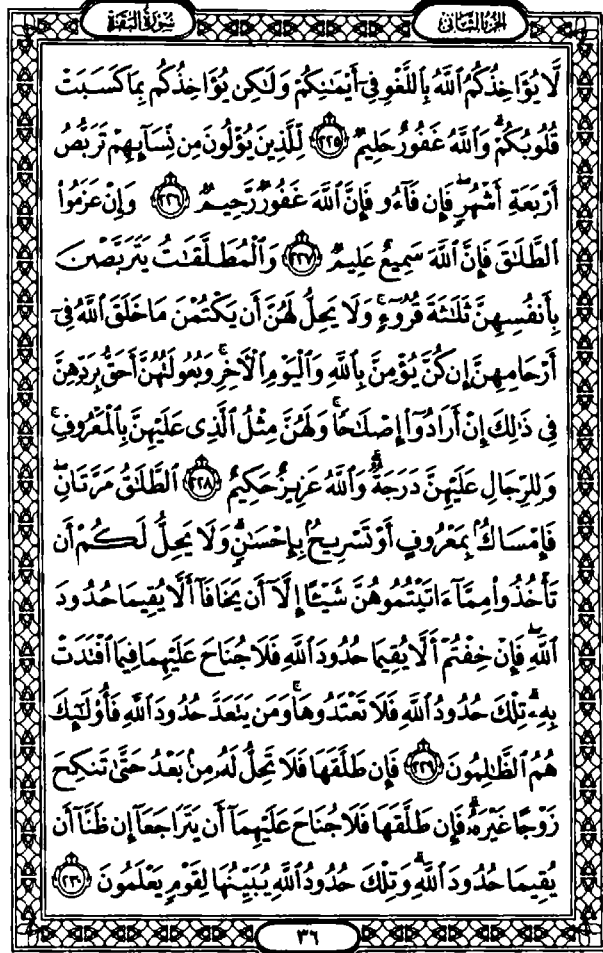 الجزء الثاني
سورة البقرة
لَّا يُؤَاخِذُكُمُ ٱللَّهُ بِٱللَّغْوِ فِىٓ أَيْمَٰنِكُمْ وَلَٰكِن يُؤَاخِذُكُم بِمَا كَسَبَتْ
قُلُوبُكُمْ ۗ وَٱللَّهُ غَفُورٌ حَلِيمٌ ﴿٢٢٥﴾ لِّلَّذِينَ يُؤْلُونَ مِن نِّسَآئِهِمْ تَرَبُّصُ
أَرْبَعَةِ أَشْهُرٍ ۖ فَإِن فَآءُو فَإِنَّ ٱللَّهَ غَفُورٌ رَّحِيمٌ ﴿٢٢٦﴾ وَإِنْ عَزَمُوا۟
ٱلطَّلَٰقَ فَإِنَّ ٱللَّهَ سَمِيعٌ عَلِيمٌ ﴿٢٢٧﴾ وَٱلْمُطَلَّقَٰتُ يَتَرَبَّصْنَ
بِأَنفُسِهِنَّ ثَلَٰثَةَ قُرُوٓءٍ ۚ وَلَا يَحِلُّ لَهُنَّ أَن يَكْتُمْنَ مَا خَلَقَ ٱللَّهُ فِىٓ
أَرْحَامِهِنَّ إِن كُنَّ يُؤْمِنَّ بِٱللَّهِ وَٱلْيَوْمِ ٱلْءَاخِرِ ۚ وَبُعُولَتُهُنَّ أَحَقُّ بِرَدِّهِنَّ
فِى ذَٰلِكَ إِنْ أَرَادُوٓا۟ إِصْلَٰحًا ۚ وَلَهُنَّ مِثْلُ ٱلَّذِى عَلَيْهِنَّ بِٱلْمَعْرُوفِ ۚ
وَلِلرِّجَالِ عَلَيْهِنَّ دَرَجَةٌ ۗ وَٱللَّهُ عَزِيزٌ حَكِيمٌ ﴿٢٢٨﴾ ٱلطَّلَٰقُ مَرَّتَانِ ۖ
فَإِمْسَاكٌۢ بِمَعْرُوفٍ أَوْ تَسْرِيحٌۢ بِإِحْسَٰنٍ ۗ وَلَا يَحِلُّ لَكُمْ أَن
تَأْخُذُوا۟ مِمَّآ ءَاتَيْتُمُوهُنَّ شَيْـًٔا إِلَّآ أَن يَخَافَآ أَلَّا يُقِيمَا حُدُودَ
ٱللَّهِ ۖ فَإِنْ خِفْتُمْ أَلَّا يُقِيمَا حُدُودَ ٱللَّهِ فَلَا جُنَاحَ عَلَيْهِمَا فِيمَا ٱفْتَدَتْ
بِهِۦ ۗ تِلْكَ حُدُودُ ٱللَّهِ فَلَا تَعْتَدُوهَا ۚ وَمَن يَتَعَدَّ حُدُودَ ٱللَّهِ فَأُو۟لَٰٓئِكَ
هُمُ ٱلظَّٰلِمُونَ ﴿٢٢٩﴾ فَإِن طَلَّقَهَا فَلَا تَحِلُّ لَهُۥ مِنۢ بَعْدُ حَتَّىٰ تَنكِحَ
زَوْجًا غَيْرَهُۥ ۗ فَإِن طَلَّقَهَا فَلَا جُنَاحَ عَلَيْهِمَآ أَن يَتَرَاجَعَآ إِن ظَنَّآ أَن
يُقِيمَا حُدُودَ ٱللَّهِ ۗ وَتِلْكَ حُدُودُ ٱللَّهِ يُبَيِّنُهَا لِقَوْمٍ يَعْلَمُونَ ﴿٢٣٠﴾
٣٦